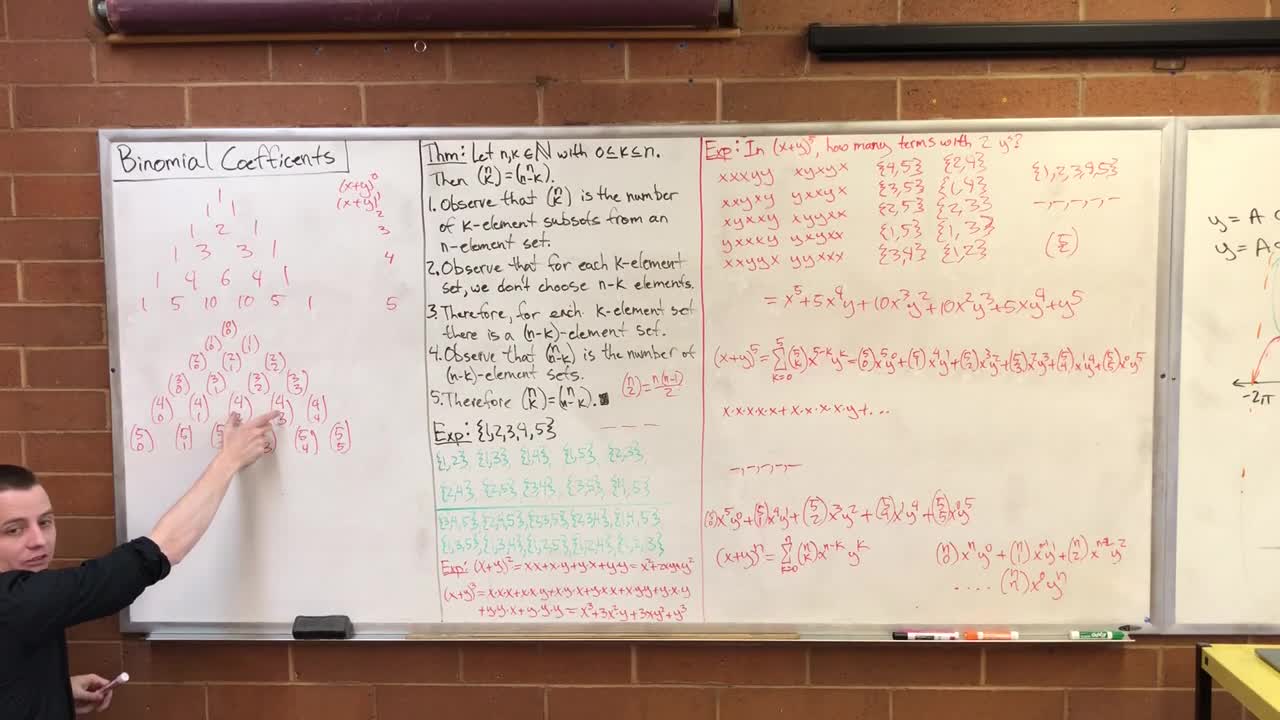 Binomial Coefficents
(x+y)⁰
1
(x+y)¹
1 1
2
1 2 1
3
1 3 3 1
4
1 4 6 4 1
5
1 5 10 10 5 1
(0 0)
(1 0) (1 1)
(2 0) (2 1) (2 2)
(3 0) (3 1) (3 2) (3 3)
(4 0) (4 1) (4 (4 3) (4 4)
(5 0) (5 1) (5 3) (5 4) (5 5)
Thm: Let n,k∈ℕ with 0≤k≤n.
Then (n k)=(n n-k).
1. Observe that (n k) is the number
of k-element subsets from an
n-element set.
2. Observe that for each k-element
set, we don't choose n-k elements.
3 Therefore, for each k-element set
there is a (n-k)-element set.
4. Observe that (n n-k) is the number of
(n-k)-element sets.
(n 2)=n(n-1)/2
5. Therefore (n k)=(n n-k).
Exp: {1,2,3,4,5} _ _ _
{1,2} {1,3} {1,4} {1,5} {2,3}
{2,4} {2,5} {3,4} {3,5} {4,5}
{3,4,5} {2,4,5} {2,3,5} {2,3,4} {1,4,5}
{1,3,5} {1,3,4} {1,2,5} {1,2,4} {1,2,3}
Exp: (x+y)²=xx+x·y+y·x+y·y=x²+2xy+y²
(x+y)³=x·x·x+x·x·y+x·y·x+y·x·x+x·y·y+y·x·y
+y·y·x+y·y·y=x³+3x²·y+3xy²+y³
Exp: In (x+y)⁵, how many terms with 2 y's?
xxxyy xyxyx {4,5} {2,4} {1,2,3,4,5}
xxyxy yxxyx {3,5} {1,4}
xyxxy xyyxx {2,5} {2,3} _,_,_,_,_
yxxxy yxyxx {1,5} {1,3} (5 2)
xxyyx yyxxx {3,4} {1,2}
=x⁵+5x⁴y+10x³y²+10x²y³+5xy⁴+y⁵
(x+y)⁵=∑ₖ₌₀⁵(5 k)x⁵⁻ᵏyᵏ=(5 0)x⁵y⁰+(5 1)x⁴y¹+(5 2)x³y²+(5 3)x²y³+(5 4)x¹y⁴+(5 5)x⁰y⁵
x·x·x·x·x+x·x·x·x·y+...
_,_,_,_,_
(5 0)x⁵y⁰+(5 1)x⁴y¹+(5 2)x³y²+(5 4)x¹y⁴+(5 5)x⁰y⁵
(x+y)ⁿ=∑ₖ₌₀ⁿ(n k)xⁿ⁻ᵏyᵏ
(n 0)xⁿy⁰+(n 1)xⁿ⁻¹y¹+(n 2)xⁿ⁻²y²
....(n n)x⁰yⁿ
y=A
y=A
-2π